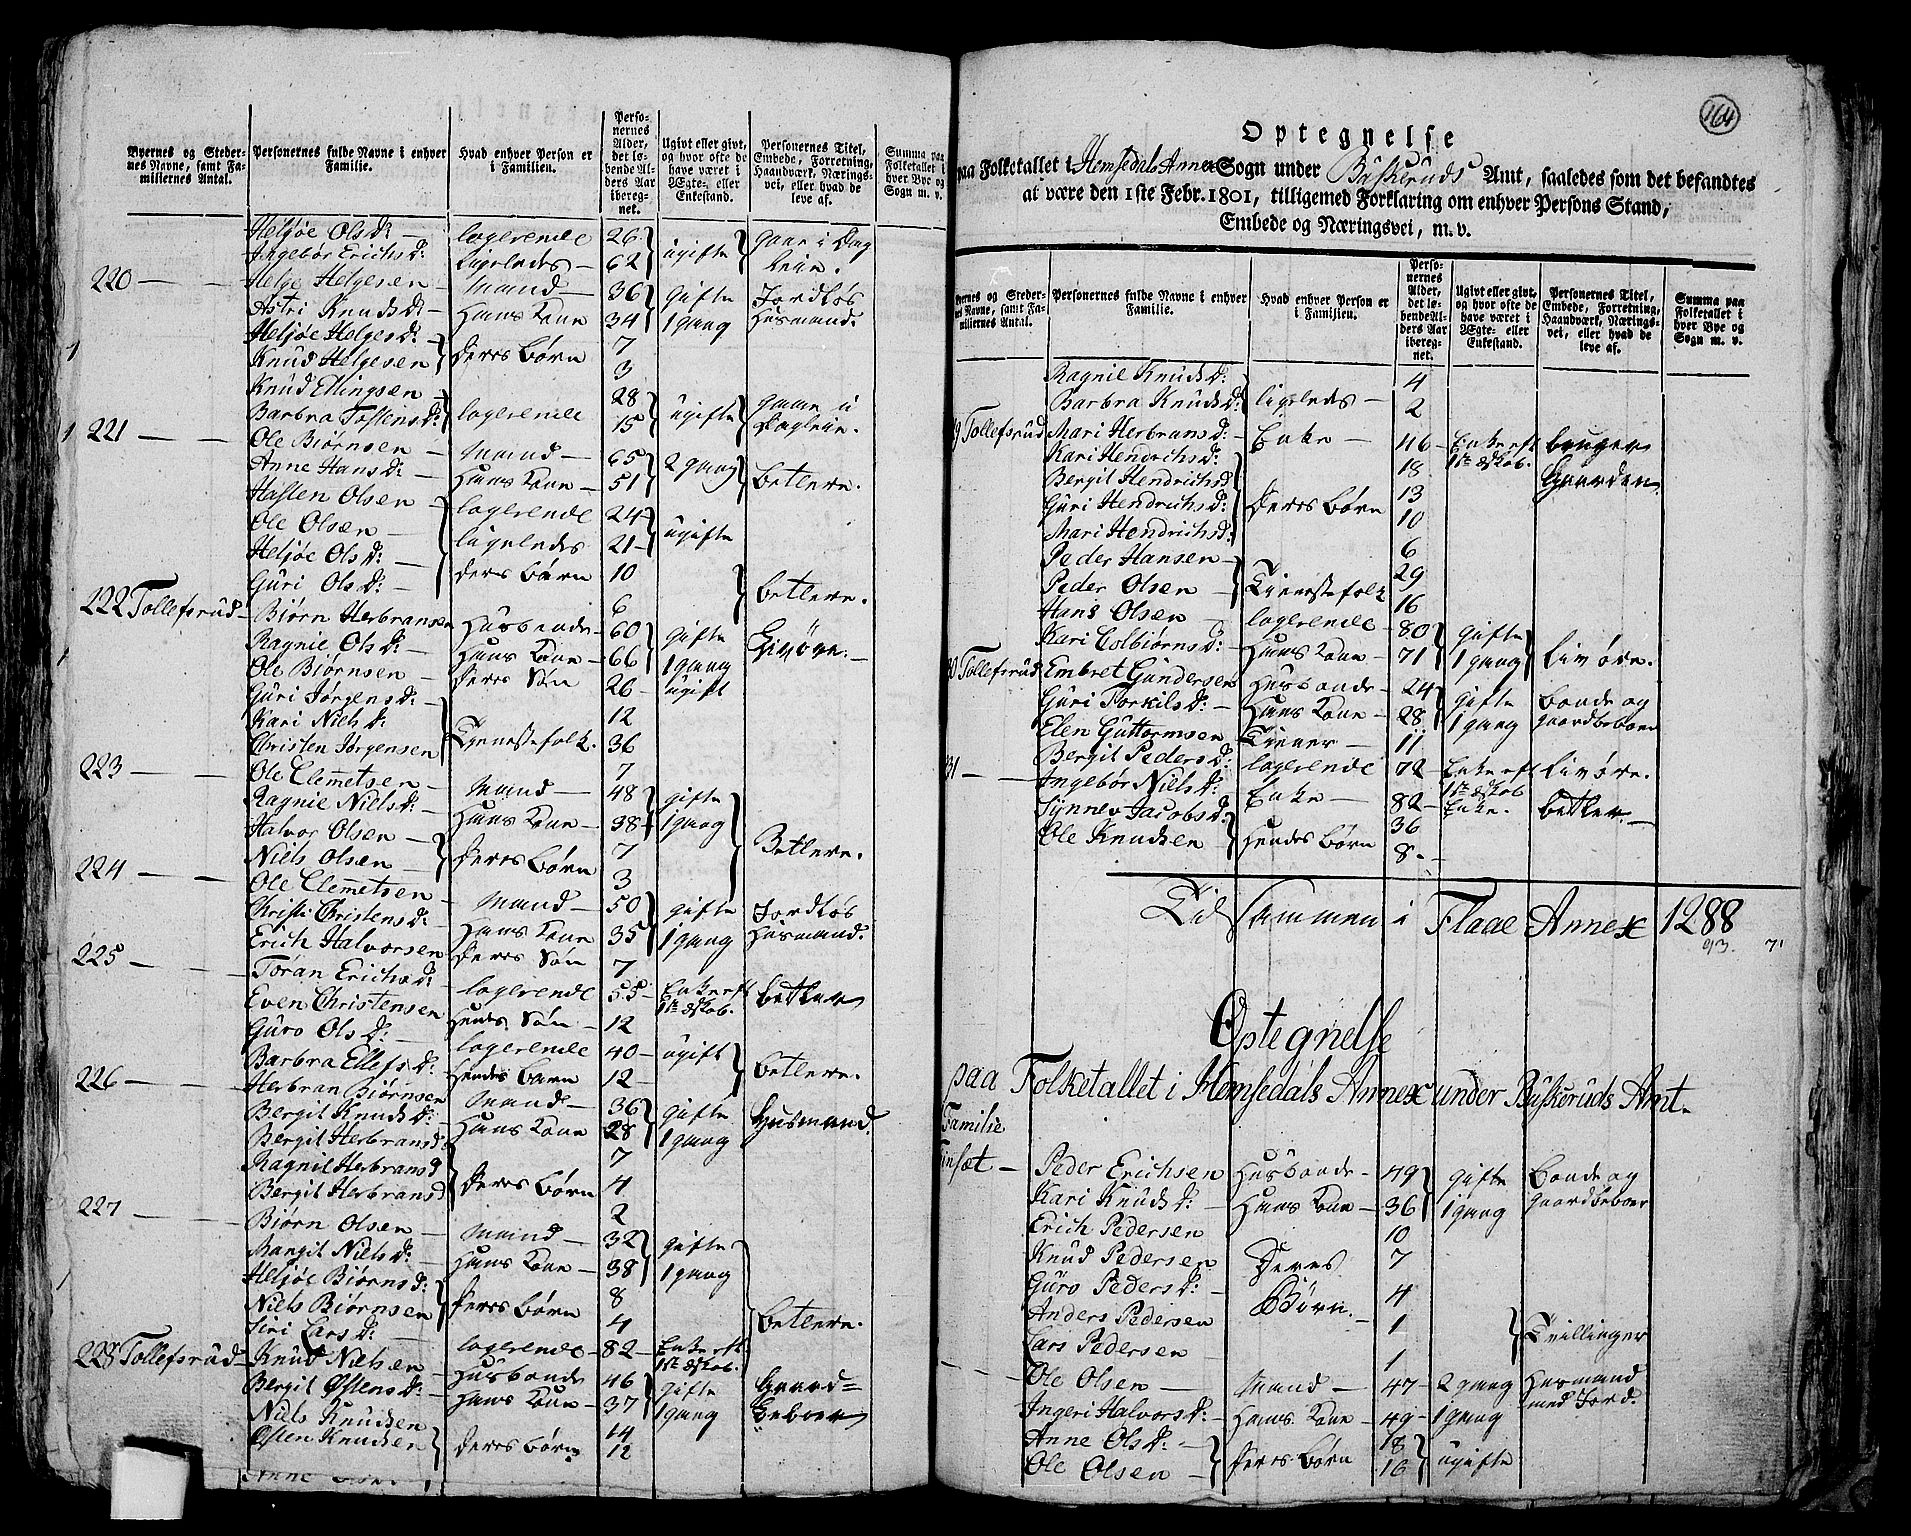 Byernes og Stedernes Navne, samt Familiernes Antal. | Personernes fulde Navne i enhver Familie. | Hvad enhver Person er i Familien. | Personernes Alder, det løbende Alders Aar iberegnet. | Ugivt eller givt, og hvor ofte de have været i Ægte- eller Enkestand. | Personernes Titel, Embede, Forretning, Haandværk, Næringsvei, eller hvad de leve af. | Summa paa Folketallet i hver Bye og Sogn m. v.
Heljøe Olsd: — logerende 26 ugifte gaar i Dag
Ingebør Erichsd: ligeledes — 62 leie.
220 — — Helge Helgesen — Mand — 36 gifte Jordløs
Astri Knudsd: — Hans Kone 34 1 gang Husmand.
Heljøe Helgesd: — Deres Børn 7
1 Knud Helgesen 3
Knud Ellingsen — logerende 28 ugifte gaae i
Barbra Tostensd: 15 Dagleie.
1 221 — — Ole Biørnsen — Mand — 65 2 gang betlere.
Anne Hansd: — Hans Kone — 51
Hasten Olsen — logerende 24 — ugifte
Ole Olsen — ligeledes 21 —
Heljøe Olsd: — Deres Børn 10 betlere.
Guri Olsd: — 6
222 Tollefsrud — Biørn Herbransen Husbonde — 60 gifte Livøre. —
1 Ragnie Olsd: — Hans Kone — 66 1 gang
Ole Biørnsen — Deres Søn 26 — ugift
Guri Jørgensd: — Tjenestefolk. 12
Kari Nielsd: 36
Christen Jørgensen 7
223 — — Ole Clemetsen — Mand — 48 gifte Betlere.
Ragnie Nielsd: — Hans Kone — 38 1 gang
Halvor Olsen — Deres Børn 7
Niels Olsen — 3
224 — — Ole Clemetsen — Mand — 50 gifte Jordløs
Christi Christensd: Hans Kone 35 1 gang Husmand.
Erich Halvorsen Deres Søn 7
225 — — Toran Erichsd: logerende 55 — Enke eft betler
Even Christensen Hendes Søn — 12 1ste Ægtskab.
Guro Olsd: — logerende 40 — ugift betlere.
Barbra Ellefsd: Hendes Barn 12 —
226 — — Herbran Biørnsen Mand — 36 gifte Husmand.
Bergit Knudsd: Hans Kone 28 1 gang
Bergit Herbransd Deres Børn 7
Ragnil Herbransd 4
Bergit Herbransd 2
227 — — Biørn Olsen — Mand — 32 gifte betlere.
Margit Nielsd: — Hans Kone — 38 1 gang
Heljøe Biørnsd: Deres Børn 8
Niels Biørnsen 4
Siri Larsd: — logerende — 82 — Enke eft 1ste Ægtskab.
228 Tollefsrud — Knud Nielsen Husbonde 46 gifte Gaard=
Bergit Østensd: — Hans Kone — 37 1 gang beboer
Niels Knudsen 14
Østen Knudsen Deres Børn 12
164
Optegnelse
paa Folketallet i Hemsedals Annex Sogn under Buskeruds Amt, saaledes som det befandtes
at være den 1ste Febr. 1801, tilligemed Forklaring om enhver Persons Stand,
Embede og Næringsvei, m. v.
Byernes og Stedernes Navne, samt Familiernes Antal. | Personernes fulde Navne i enhver Familie. | Hvad enhver Person er i Familien. | Personernes Alder, det løbende Alders Aar iberegnet. | Ugivt eller givt, og hvor ofte de have været i Ægte- eller Enkestand. | Personernes Titel, Embede, Forretning, Haandværk, Næringsvei, eller hvad de leve af. | Summa paa Folketallet i hver Bye og Sogn m. v.
Ragnie Knudsd: 4
Barbra Knudsd: ligeledes — 2
9 Tollefsrud Mari Herbransd: — Enke — 46 — Enke eft bruger
Kari Hendrichsd: Deres Børn 18 1ste Ægtskab. Gaarden.
Bergit Hendrichsd 13
Guri Hendrichsd: 10
Mari Hendrichsd: 6
Peder Hansen — Tienestefolk 29
Peder Olsen — 16
Hans Olsen — logerende — 80 gifte Livøre.
Kari Colbiørnsd: Hans Kone — 71 1 gang
0 Tollefsrud Embret Gundersen Husbonde — 24 gifte Bonde og
Guri Torkilsd: — Hans Kone — 28 1 gang gaardbeboer
Elen Guttormsen Tiener — 11
Bergit Pedersd: logerende 72 — Enke eft Livøre.
31 — — Ingebør Nielsd: Enke — 82 — 1ste Ægtskab Enke. betler. —
Synnev Jacobsd: Hendes Børn 36
Ole Knudsen 8. —
Tilsammen i Flaae Annex 1288
93. 71
Optegnelse
paa Folketallet i Hemsedals Annex under Buskeruds Amt.
Familie
Peder Erichsen Husbonde — 49 gifte Bonde og
Kari Knudsd: — Hans Kone — 36 1 gang gaardbeboer
Erich Pedersen 10
Knud Pedersen Deres 7
Guro Pedersd: — Børn. — 4
Anders Pedersen 1 Tvillinger
Lars Pedersen — 1
— — Ole Olsen — Mand — 47 — 2 gang Husmand
Ingeri Halvorsd: — Hans Kone — 49 — 1 gang med Jord.
Anne Olsd: — Deres Børn 18 ugifte
Ole Olsen — 16